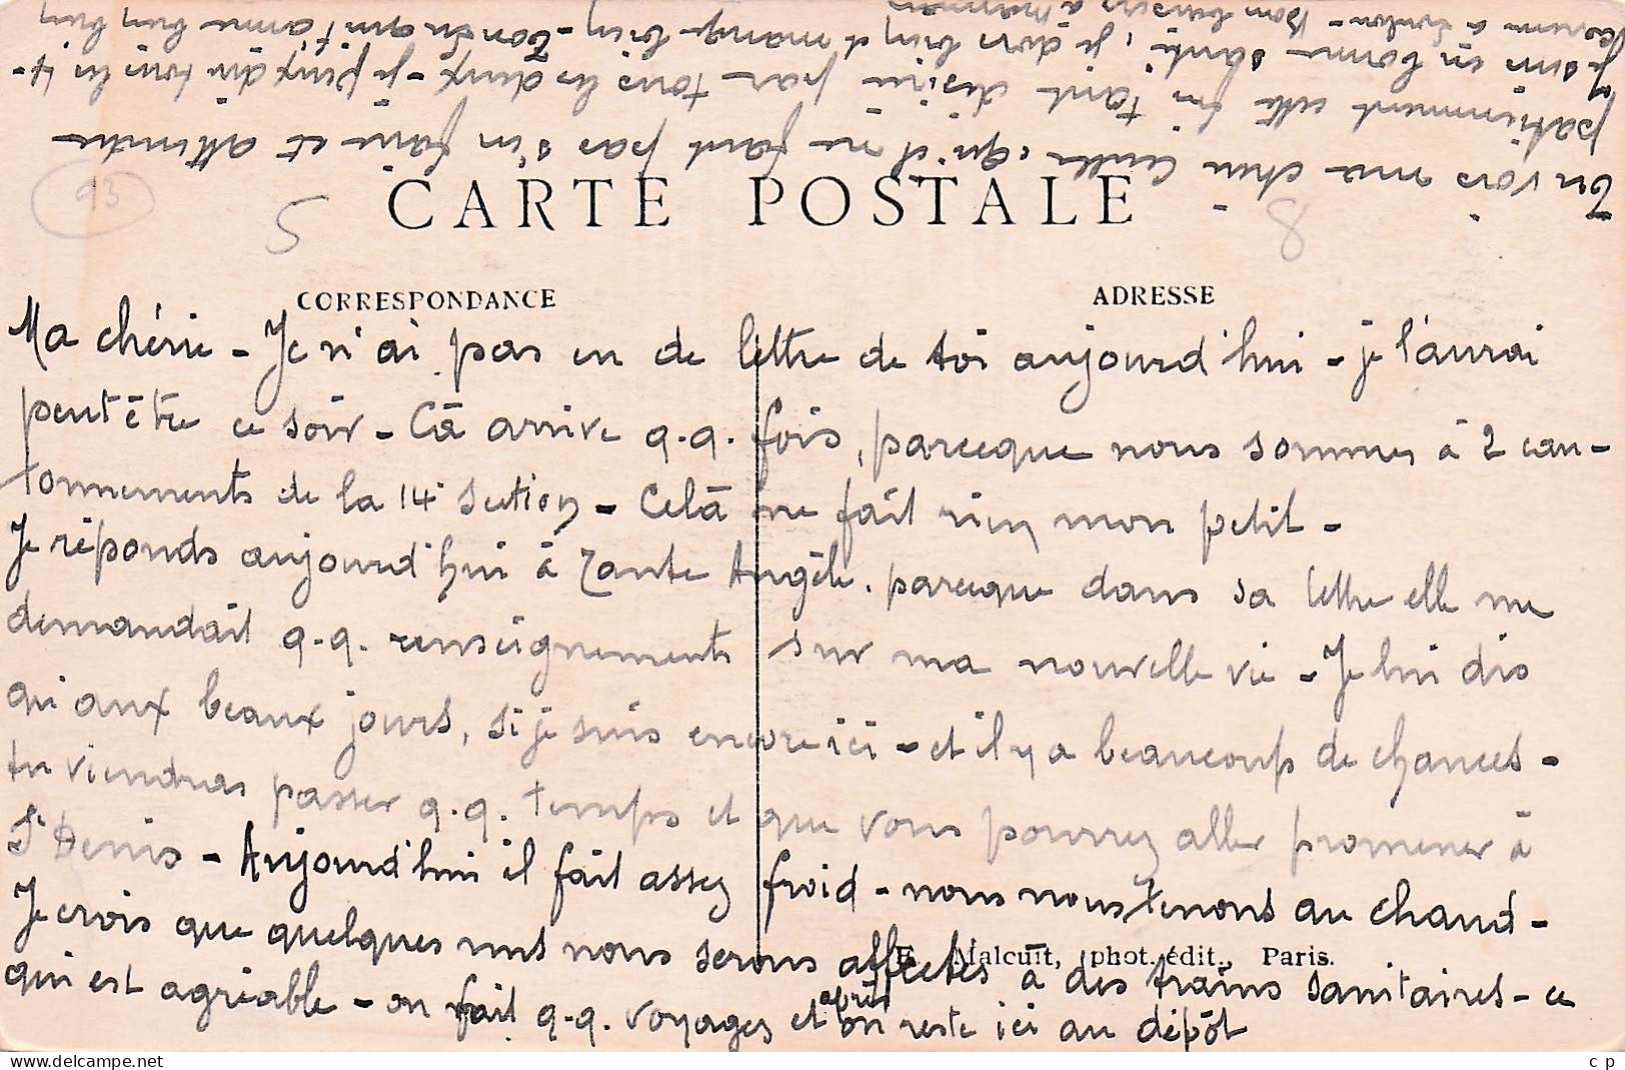 93
5
CARTE POSTALE
8
CORRESPONDANCE
ADRESSE
Ma chérie - Je n'ai pas eu de lettre de toi aujourd'hui - je l'aurai
peut être ce soir - Cà arrive q.q. fois, parceque nous sommes à 2 can-
tonnements de la 14e section - Celà ne fait rien mon petit -
Je réponds aujourd'hui à Tante Angèle. parceque dans sa lettre elle me
demandait q.q. renseignements sur ma nouvelle vie - Je lui dis
qui aux beaux jours, si je suis encore ici - et il y a beaucoup de chances -
tu viendras passer q.q. temps et que vous pourrez aller promener à
St Denis - Aujourd'hui il fait assez froid - nous nous tenons au chaud -
Je crois que quelques uns nous serons affectés à des trains sanitaires - ce
qui est agréable - on fait q.q. voyages et après on reste ici au dépôt
E. Malcuit, phot. édit., Paris.
Tu vois ma chère qu'il ne faut pas s'en faire et attendre
patiemment cette fin tant désirée par tous les deux - je peux dire tous les 4 -
Je suis en bonne santé, je dors bien et mange bien - Ton qui t'aime bien
Bon baisers à maman
c p